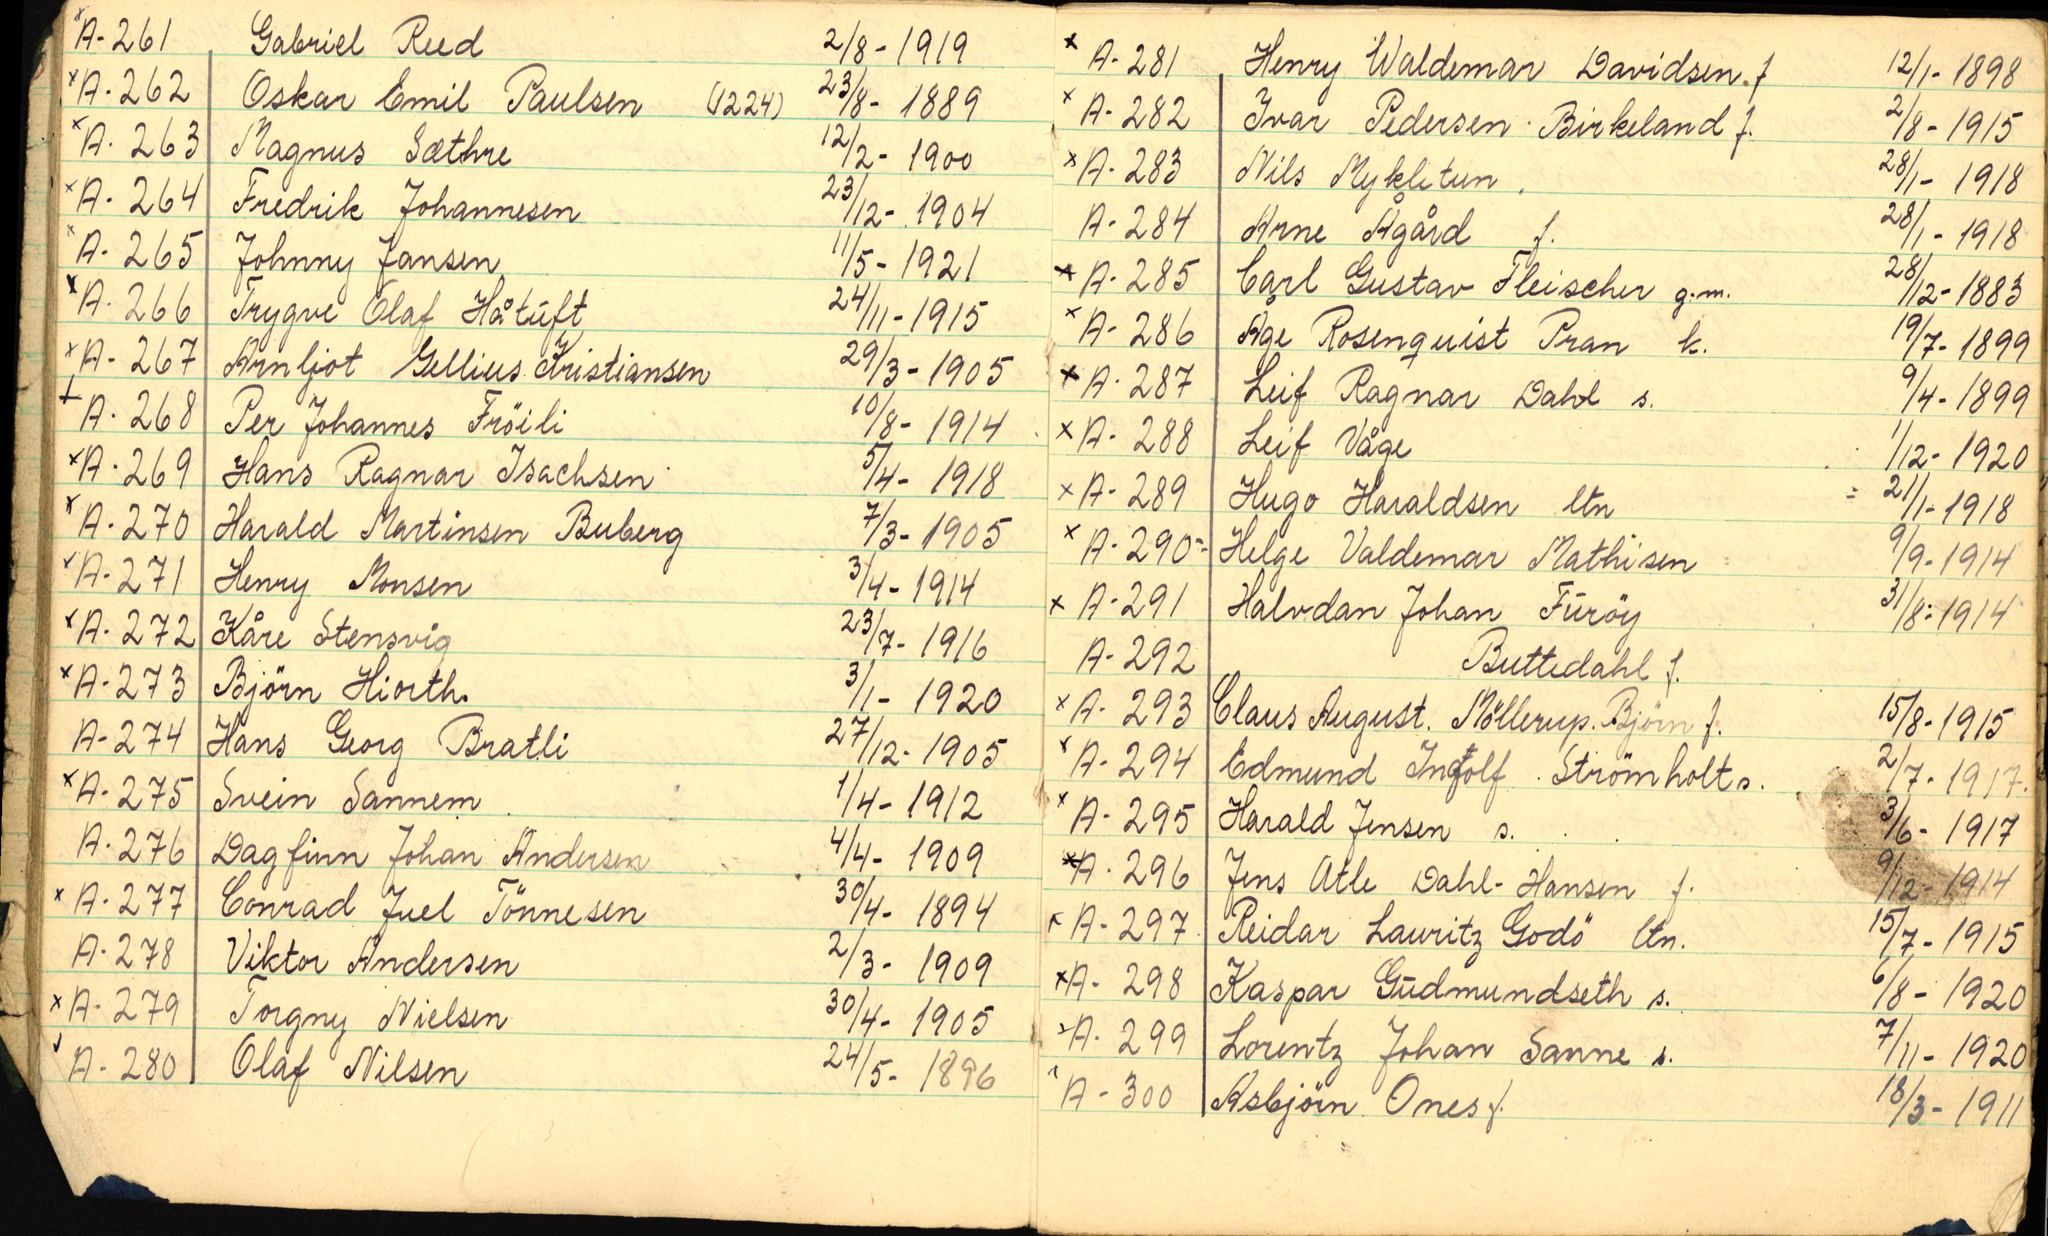 x A-261 Gabriel Reed 2/8-1919
x A-262 Oskar Emil Paulsen (1224) 23/8-1889
x A-263 Magnus Sæthre 12/2-1900
x A-264 Fredrik Johannesen 23/12-1904
x A-265 Johnny Jansen 11/5-1921
x A-266 Trygve Olaf Håtuft 24/11-1915
x A-267 Arnljot Gellius Kristiansen 29/3-1905
+ A-268 Per Johannes Fröili 10/8-1914
x A-269 Hans Ragnar Isachsen 5/4-1918
x A-270 Harald Martinsen Buberg 7/3-1905
x A-271 Henry Monsen 3/4-1914
x A-272 Kåre Stensvig 23/7-1916
x A-273 Björn Hiorth. 3/1-1920
A-274 Hans Georg Bratli 27/12-1905
x A-275 Svein Sannem 1/4-1912
A-276 Dagfinn Johan Andersen 4/4-1909
x A-277 Conrad Juel Tönnesen 30/4-1894
A-278 Viktor Andersen 2/3-1909
x A-279 Torgny Nielsen 30/4-1905
A-280 Olaf Nilsen 24/5-1896
x A-281 Henry Waldemar Davidsen f 12/1-1898
x A-282 Ivar Pedersen Birkeland f. 2/8-1915
x A-283 Nils Mykletun. 28/1-1918
A-284 Arne Ågård f. 28/1-1918
x A-285 Carl Gustav Fleischer g.m. 28/12-1883
x A-286 Åge Rosenquist Pran k. 19/7-1899
x A-287 Leif Ragnar Dahl s. 9/4-1899
x A-288 Leif Våge 1/12-1920
x A-289 Hugo Haraldsen ltn = 21/1-1918
x A-290= Helge Valdemar Mathisen 9/9-1914
x A-291 Halvdan Johan Furöy 31/8-1914
A-292 Buttedahl f.
x A-293 Claus August. Möllerup. Björn f. 15/8-1915
x A-294 Edmund Ingolf Strömholt s. 2/7-1917.
x A-295 Harald Jensen s. 3/6-1917
x A-296 Jens Atle Dahl-Hansen f. 9/12-1914
x A-297 Reidar Lauritz Godö ltn. 15/7-1915
x A-298 Kaspar Gudmundseth s. 6/8-1920
x A-299 Lorentz Johan Sanne s. 7/11-1920
A-300 Asbjörn Ones f. 18/3-1911